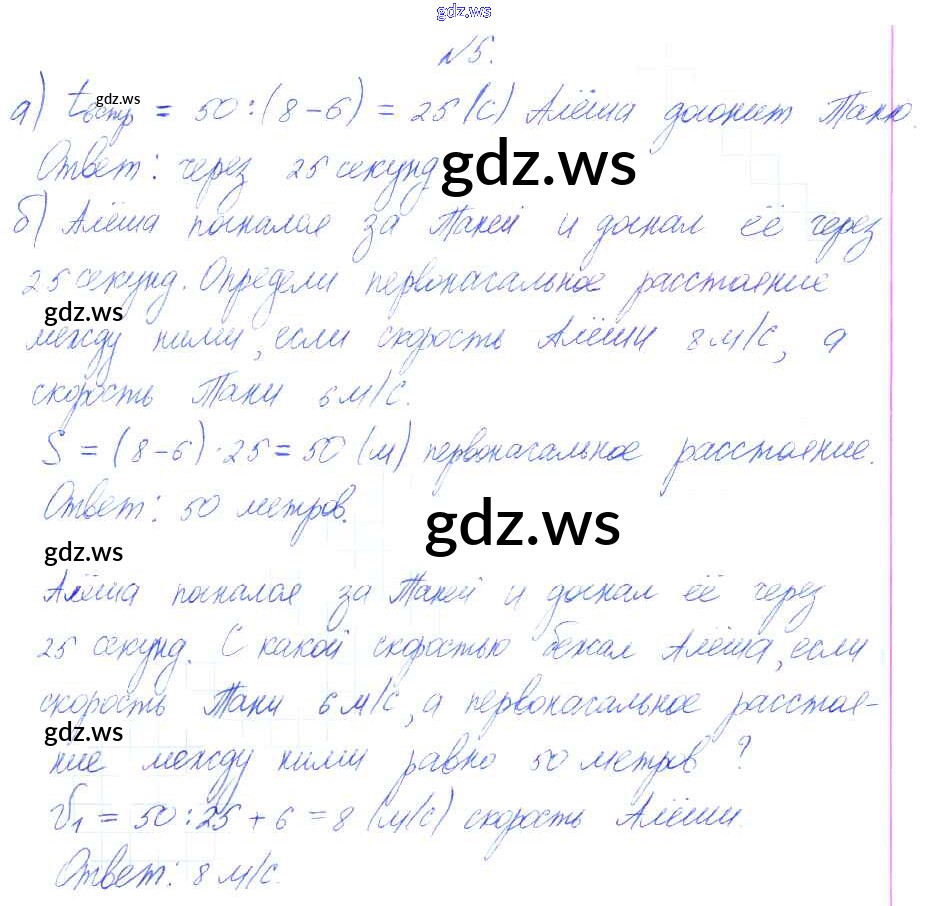 gdz.ws
№5.
а) tвстр = 50 : (8 – 6) = 25 (с) Алёша догонит Таню.
gdz.ws
Ответ: через 25 секунд
gdz.ws
б) Алёша погнался за Таней и догнал её через
25 секунд. Определи первоначальное расстояние
gdz.ws
между ними, если скорость Алёши 8 м/с, а
скорость Тани 6 м/с.
S = (8 – 6) · 25 = 50 (м) первоначальное расстояние.
Ответ: 50 метров.
gdz.ws
gdz.ws
Алёша погнался за Таней и догнал её через
25 секунд. С какой скоростью бежал Алёша, если
скорость Тани 6 м/с, а первоначальное расстоя-
gdz.ws
ние между ними равно 50 метров?
V1 = 50 : 25 + 6 = 8 (м/с) скорость Алёши.
Ответ: 8 м/с.